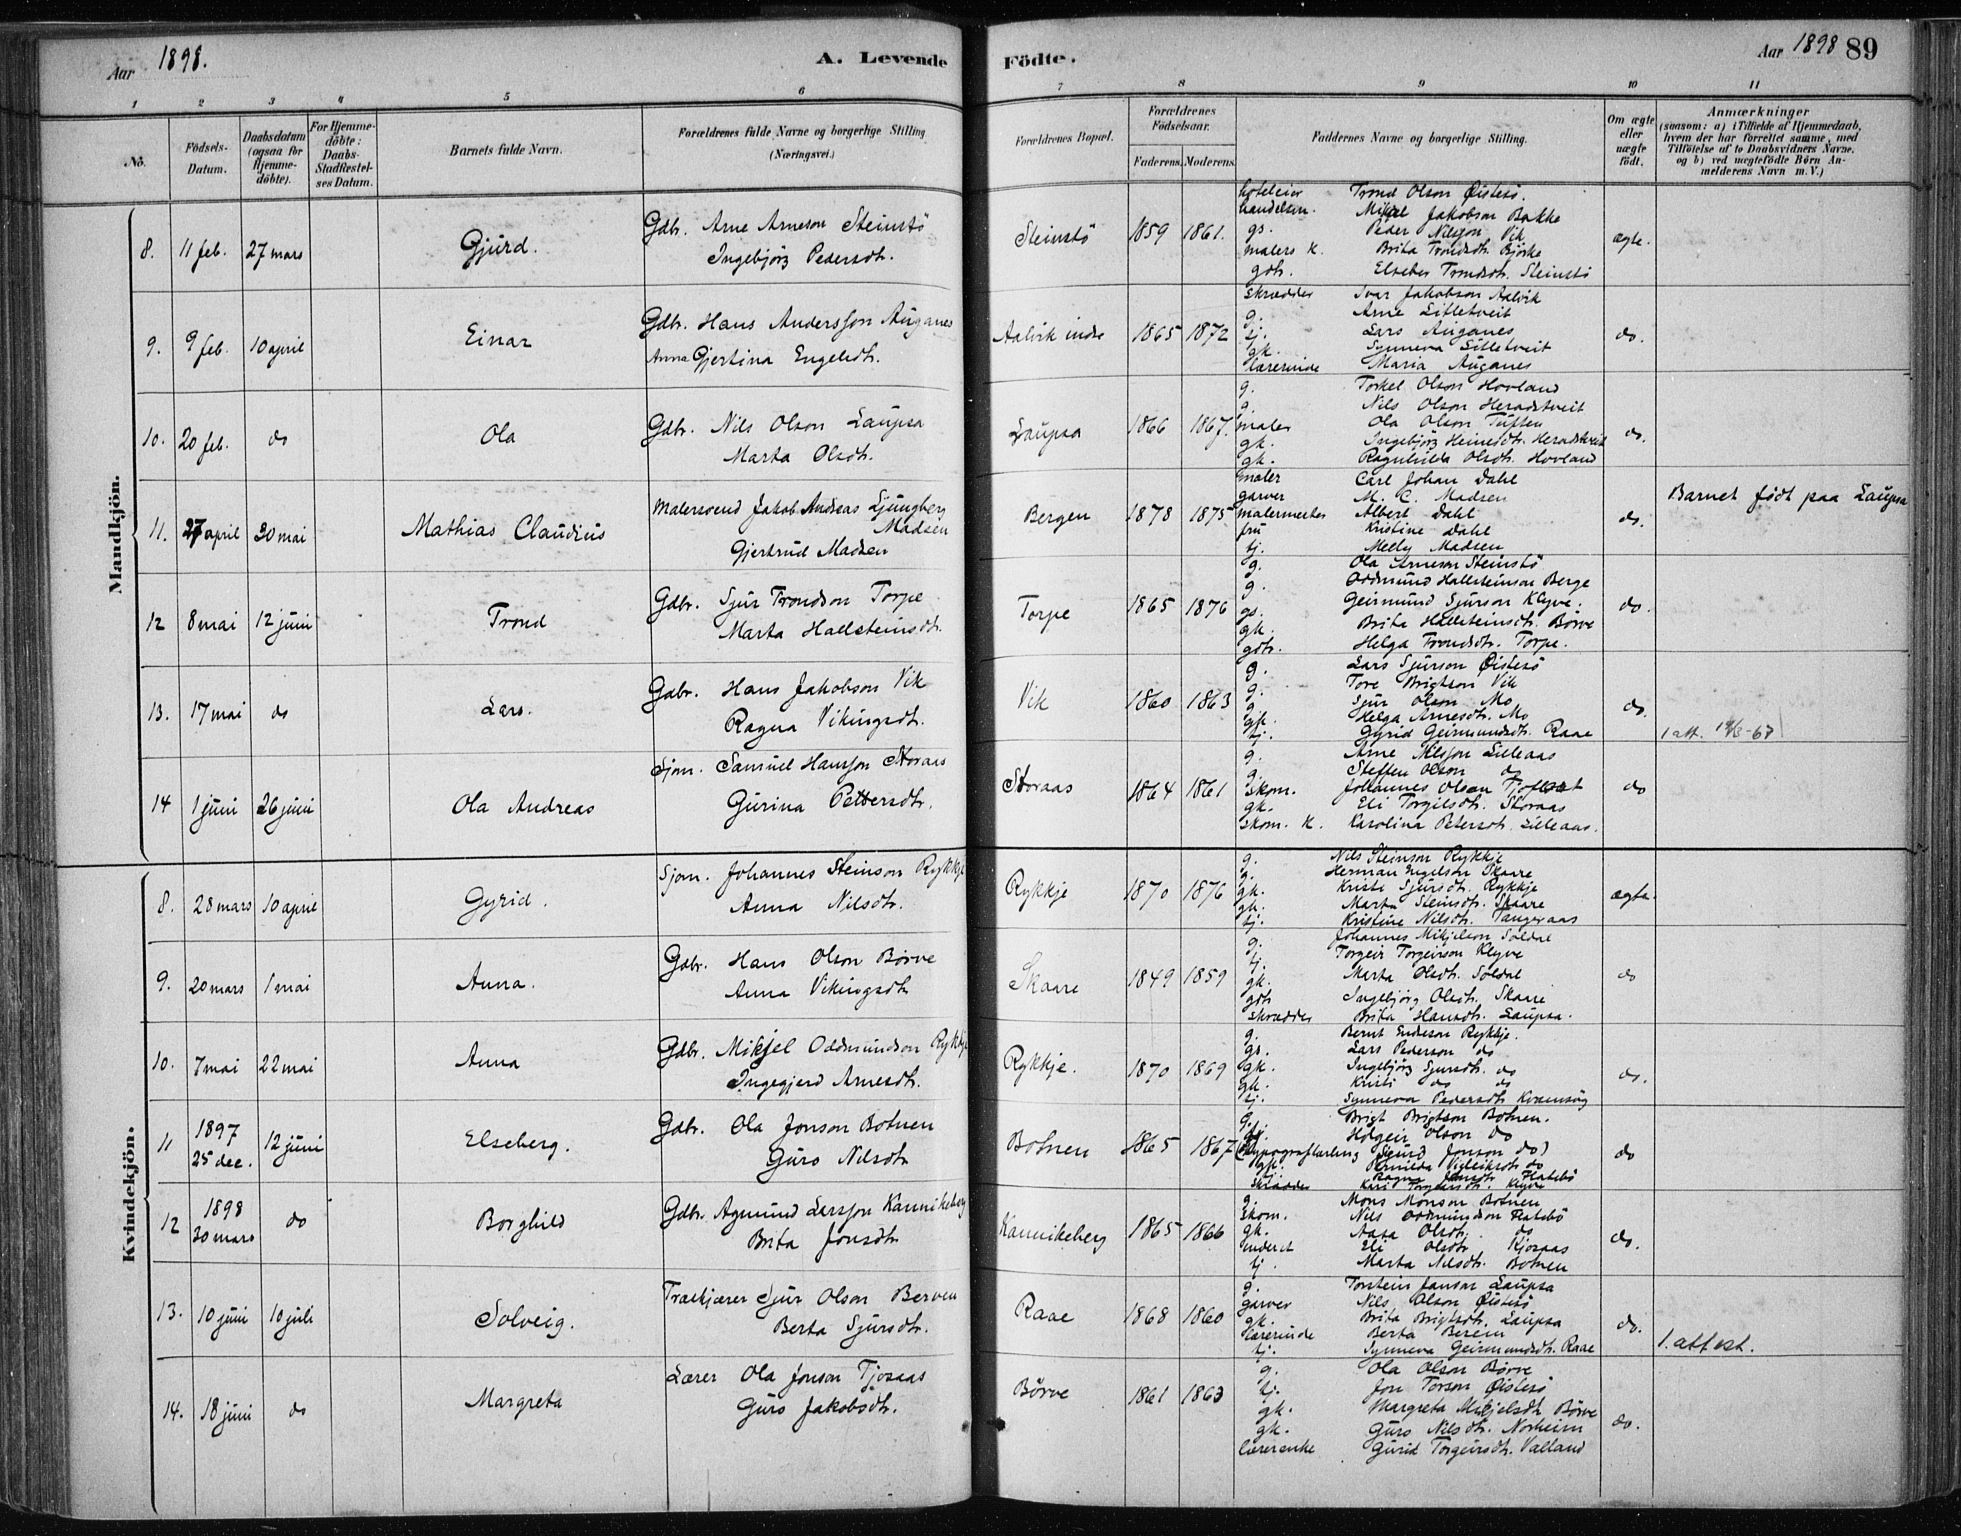 Aar 1898.
A. Levende
Födte.
Aar 1898 89
1 2 3 4 5 6 7 8 9 10 11
No.
Födsels-
Datum.
Daabsdatum
(ogsaa for
Hjemme-
döbte).
For Hjemme-
döbte:
Daabs-
Stadfæstel-
ses Datum.
Barnets fulde Navn.
Forældrenes fulde Navne og borgerlige Stilling
(Næringsvei.)
Forældrenes Bopæl.
Forældrenes
Födselsaar.
Faderens. Moderens.
Faddernes Navne og borgerlige Stilling.
Om ægte
eller
uægte
födt.
Anmærkninger
(saasom: a) i Tilfælde af Hjemmedaab,
hvem der har forrettet samme, med
Tilföielse af to Daabsvidners Navne.
og b) ved uægtefödte Börn An-
melderens Navn m. V.)
Mandkjön.
8. 11 feb. 27 mars Gjurd.
Gdbr. Arne Arneson Steinstö
Ingebjörg Pedersdtr.
Steinstö 1859 1861.
hoteleier Trond Olson Öistesö.
handelsm. Mikjel Jakobson Bakke
gs. Peder Nilsson Vik
malers k. Brita Trondsdtr. Bjørke
gdtr. Elseber Trondsdtr. Steinstö
ægte.
9. 9 feb. 10 april Einar
Gdbr. Hans Andersson Auganes
Anna Gjertina Engelsdtr.
Aalvik indre 1865 1872
skrædder Ivar Jakobson Aalvik
g. Arne Litletveit
tj. Lars Auganes
gk. Synneva Litletveit
lærerinde Maria Auganes
do.
10. 20 feb. do Ola
Gdbr. Nils Olson Laupsa
Marta Olsdtr.
Laupsa 1866 1867.
g. Torkel Olson Hovland
g. Nils Olson Heradstveit
maler Ola Olson Tuften
gk. Ingebjörg Heinesdtr. Heradstveit
gk. Ragnhilda Olsdtr. Hovland
do.
11. 27 april 30 mai Mathias Claudius
Malersvend Jakob Andreas Ljungberg
Madsen
Gjertrud Madsen
Bergen 1878 1875
maler Carl Johan Dahl
garver M. C. Madsen
malermester Albert Dahl
fru Kristine Dahl
tj. Melly Madsen
do.
Barnet födt paa Laupsa
12 8 mai 12 juni Trond
Gdbr. Sjur Trondson Torpe
Marta Hallsteinsdtr.
Torpe 1865 1876
g. Ola Arneson Steinstö
g. Oddmund Hallsteinson Berge
gs. Geirmund Sjurson Klyve.
gk. Brita Hallsteinsdtr. Börve
gdtr. Helga Trondsdtr. Torpe.
do.
13. 17 mai do Lars.
Gdbr. Hans Jakobson Vik
Ragna Vikingsdtr.
Vik 1860 1863
g. Lars Sjurson Öistesö
g. Tore Brigtson Vik
g. Sjur Olson Mo
gk. Helga Arnesdtr. Mo
tj. Gyrid Geirmundsdtr. Raae
do.
14 1 juni 26 juni Ola Andreas
Sjom. Samuel Hansson Storaas
Gurina Pettersdtr.
Storaas 1864 1861
g. Arne Nilsson Lilleaas
g. Steffen Olson do
skom. Johannes Olson
gk. Eli Torgilsdtr. Storaas
skom. K. Karolina Petersdtr. Lilleaas.
do
Kvindekjön.
8. 28 mars 10 april Gyrid.
Sjom. Johannes Steinson Rykkje
Anna Nilsdtr.
Rykkje 1870 1876
g. Nils Steinson Rykkje
g. Herman Engelson Skaare
gk. Kristi Sjursdtr. Rykkje
gk. Marta Steinsdtr. Skaare
tj. Kristine Nilsdtr. Tangeraas
ægte.
9. 20 mars 1 mai Anna.
Gdbr. Hans Olson Börve
Anna Vikingsdtr
Skaare 1849 1859
g. Johannes Mikjelson Soldal
tj. Torgeir Torgeirson Klyve
gk. Marta Olsdtr. Soldal
gdtr Ingebjörg Olsdtr. Skaare
skrædder Brita Hansdtr. Laupsa.
do
10. 7 mai 22 mai Anna
Gdbr. Mikjel Oddmundson Rykkje
Ingegjerd Arnesdtr.
Rykkje. 1870 1869
g. Bernt Endreson Rykkje.
gs. Lars Pederson do
gk. Ingebjörg Sjursdtr. do
gk. Kristi do do
tj. Synneva Pedersdtr. Kvamsöy
do.
11 1897
25 dec. 12 juni Elseberg.
Gdbr. Ola Jonson Botnen
Guro Nilsdtr
Botnen 1865 1867
g. Brigt Brigtson Botnen.
Holgeir Olson do
(Typograflærling Sigurd Jonson do)
gk. do
tj. Ragna Jonsdtr Flatebö
Kari Torgeirsdtr. Klyve
do
12 1898
30 mars do Borghild
Gdbr. Agmund Larsson Kannikeberg
Brita Jonsdtr
Kannikeberg 1865 1866
g. Mons Monson Botnen
skom. Nils Oddmundson Flatebö
gk. Aasa Olsdtr. do
Eli Olsdtr Kjosaas
tj. Marta Nilsdtr. Botnen
do.
13. 10 juni 10 juli Solveig.
Træskjærer Sjur Olson Berven
Berta Sjursdtr.
Raae 1868 1860
g. Torstein Jansar Laupsa
garver Nils Olson Öistesö
gk. Brita Brigtsdtr. Laupsa
lærerinde Berta Berven
tj. Synneva Geirmundsdtr. Raae
do.
1. attest.
14. 18 juni do Margreta
Lærer Ola Jonson Tjosaas
Guro Jakobsdtr.
Börve 1861 1863
g. Ola Olson Börve
tj. Jon Torson Öistesö
gk. Margreta Mikjelsdtr. Börve
gk. Guro Nilsdtr. Norheim
lærerenke Gurid Torgeirsdtr. Valland
do.